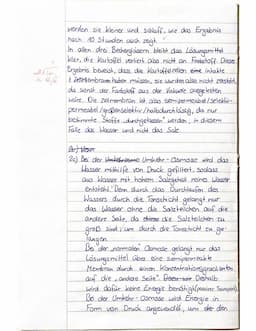 werden sie kleiner und schlaff, wie das Ergebnis
nach 10 Stunden auch zeigt.
In allen drei Bechergläsern bleibt das Lösungsmittel
klar, die Kartoffel verliert also nicht an Farbstoff. Dieses
Ergebnis beweist, dass die Kartoffeln eine intakte
Zellmembran haben müssen, sie wurden also nicht zerstört,
da sonst der Farbstoff aus der Vakuole ausgetreten
wäre. Die Zellmembran ist also semipermeabel/selektiv-
permeabel/größenselektiv/halbdurchlässig, da nur
bestimmte Stoffe "durchgelassen" werden, in diesem
Falle das Wasser und nicht das Salz.
2a) Bei der Umkehr-Osmose wird das
Wasser mithilfe von Druck gefiltert, sodass
aus Wasser mit hohem Salzgehalt reines Wasser
entsteht. Denn durch das Durchlaufen des
Wassers durch die Trennschicht gelangt nur
das Wasser ohne die Salzteilchen auf die
andere Seite, da die Salzteilchen zu
groß sind, um durch die Trennschicht zu ge-
langen.
Bei der "normalen" Osmose gelangt nur das
Lösungsmittel über eine semipermeable
Membran durch einen Konzentrationsgradienten
auf die "andere Seite". Deshalb
wird dafür keine Energie benötigt
Bei der Umkehr-Osmose wird Energie in
Form von Druck angewandt, um der den